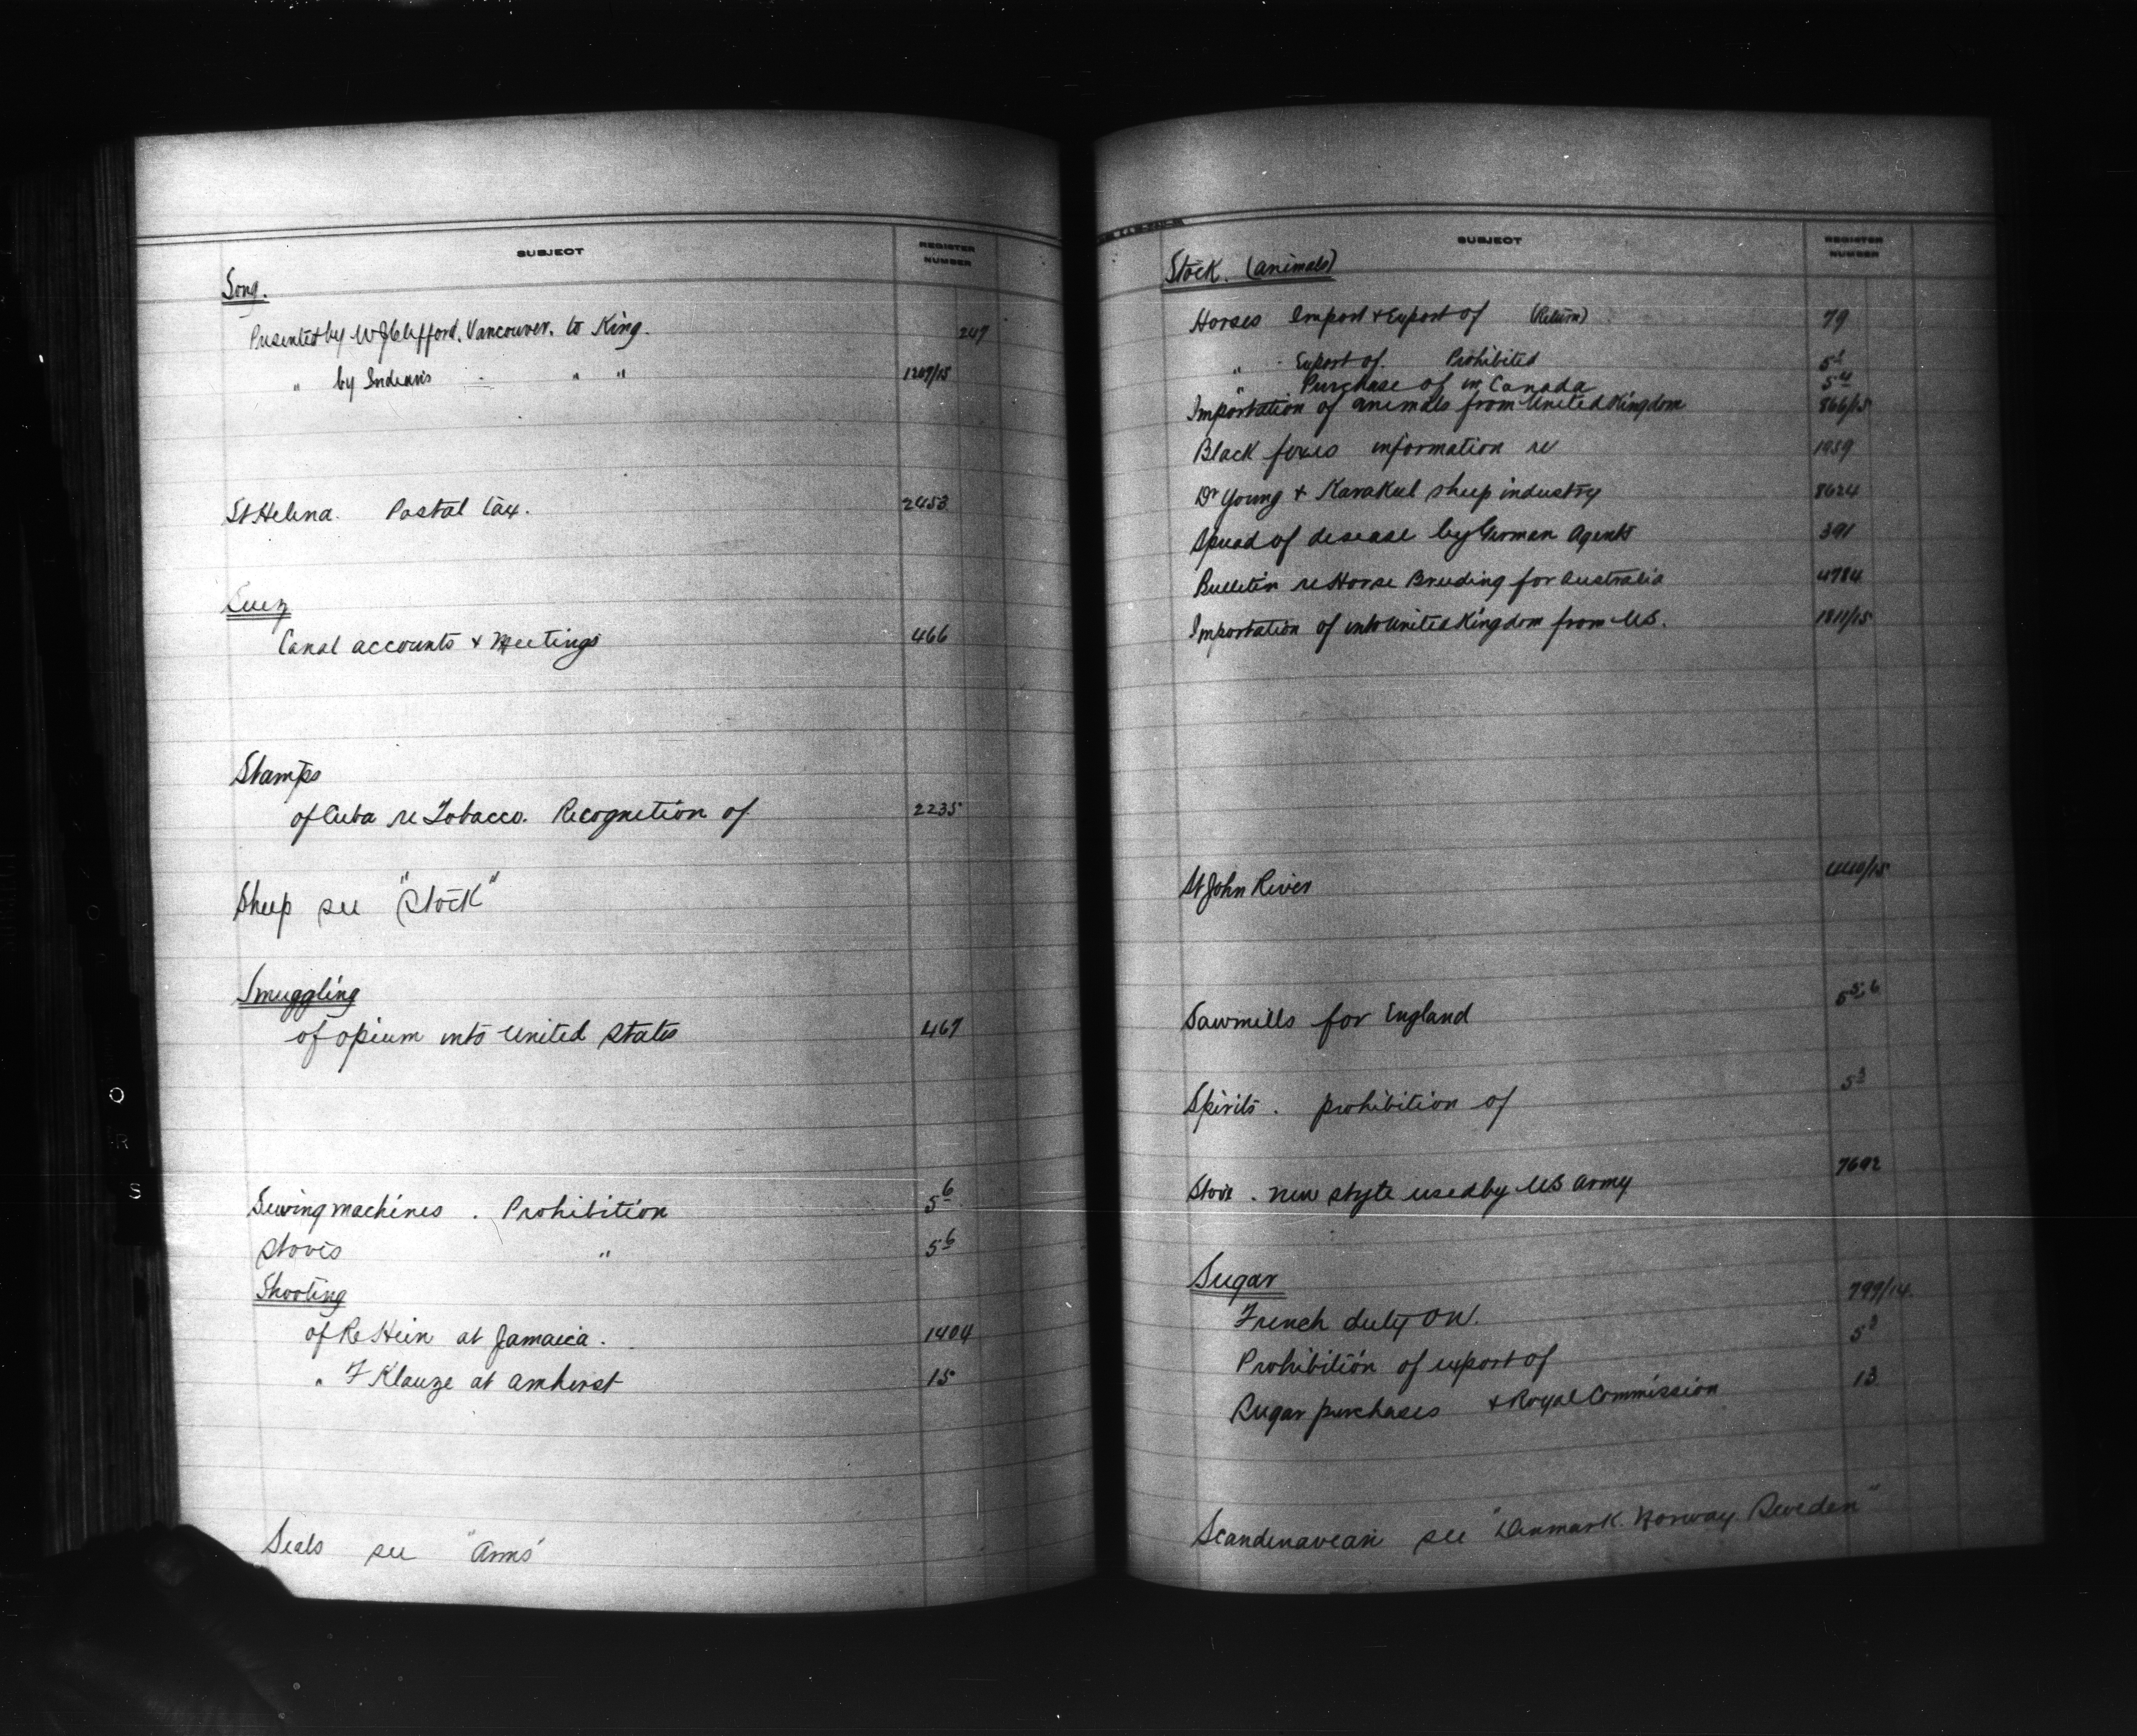 SUBJECT REGISTER NUMBER
Song.
Presented by W J Clifford, Vancouver. to King. 247
" by Indians " " 1209/15
St Helena. Postal tax. 2453
Suez
Canal accounts & Meetings 466
Stamps
of Cuba re Tobacco. Recognition of 2235
Sheep see "Stock"
Smuggling
of opium into United States 467
Sewing machines. Prohibition 5 6
Stoves " 5 6
Shooting
of Re Hein at Jamaica. 1404
" F Klauze at Amherst 15
Seals see "Arms"
SUBJECT REGISTER NUMBER
Stock. (animals)
Horses Import & Export of (Return) 79
" Export of. Prohibited
" Purchase of in Canada 5 4
Importation of animals from United Kingdom 866/15
Black foxes information re 1959
Dr Young & Karakul sheep industry 8624
Spread of desease by German Agents 391
Bulletin re Horse Breeding for Australia 4784
Importation of into United Kingdom from US. 1811/15
St John River
Sawmills for England 5 5-6
Spirits. prohibition of 5 3
Stove. new style used by US Army 7692
Sugar
French duty on. 799/14
Prohibition of export of
Sugar purchases & Royal Commission 13
Scandenavean see "Denmark. Norway Sweden"